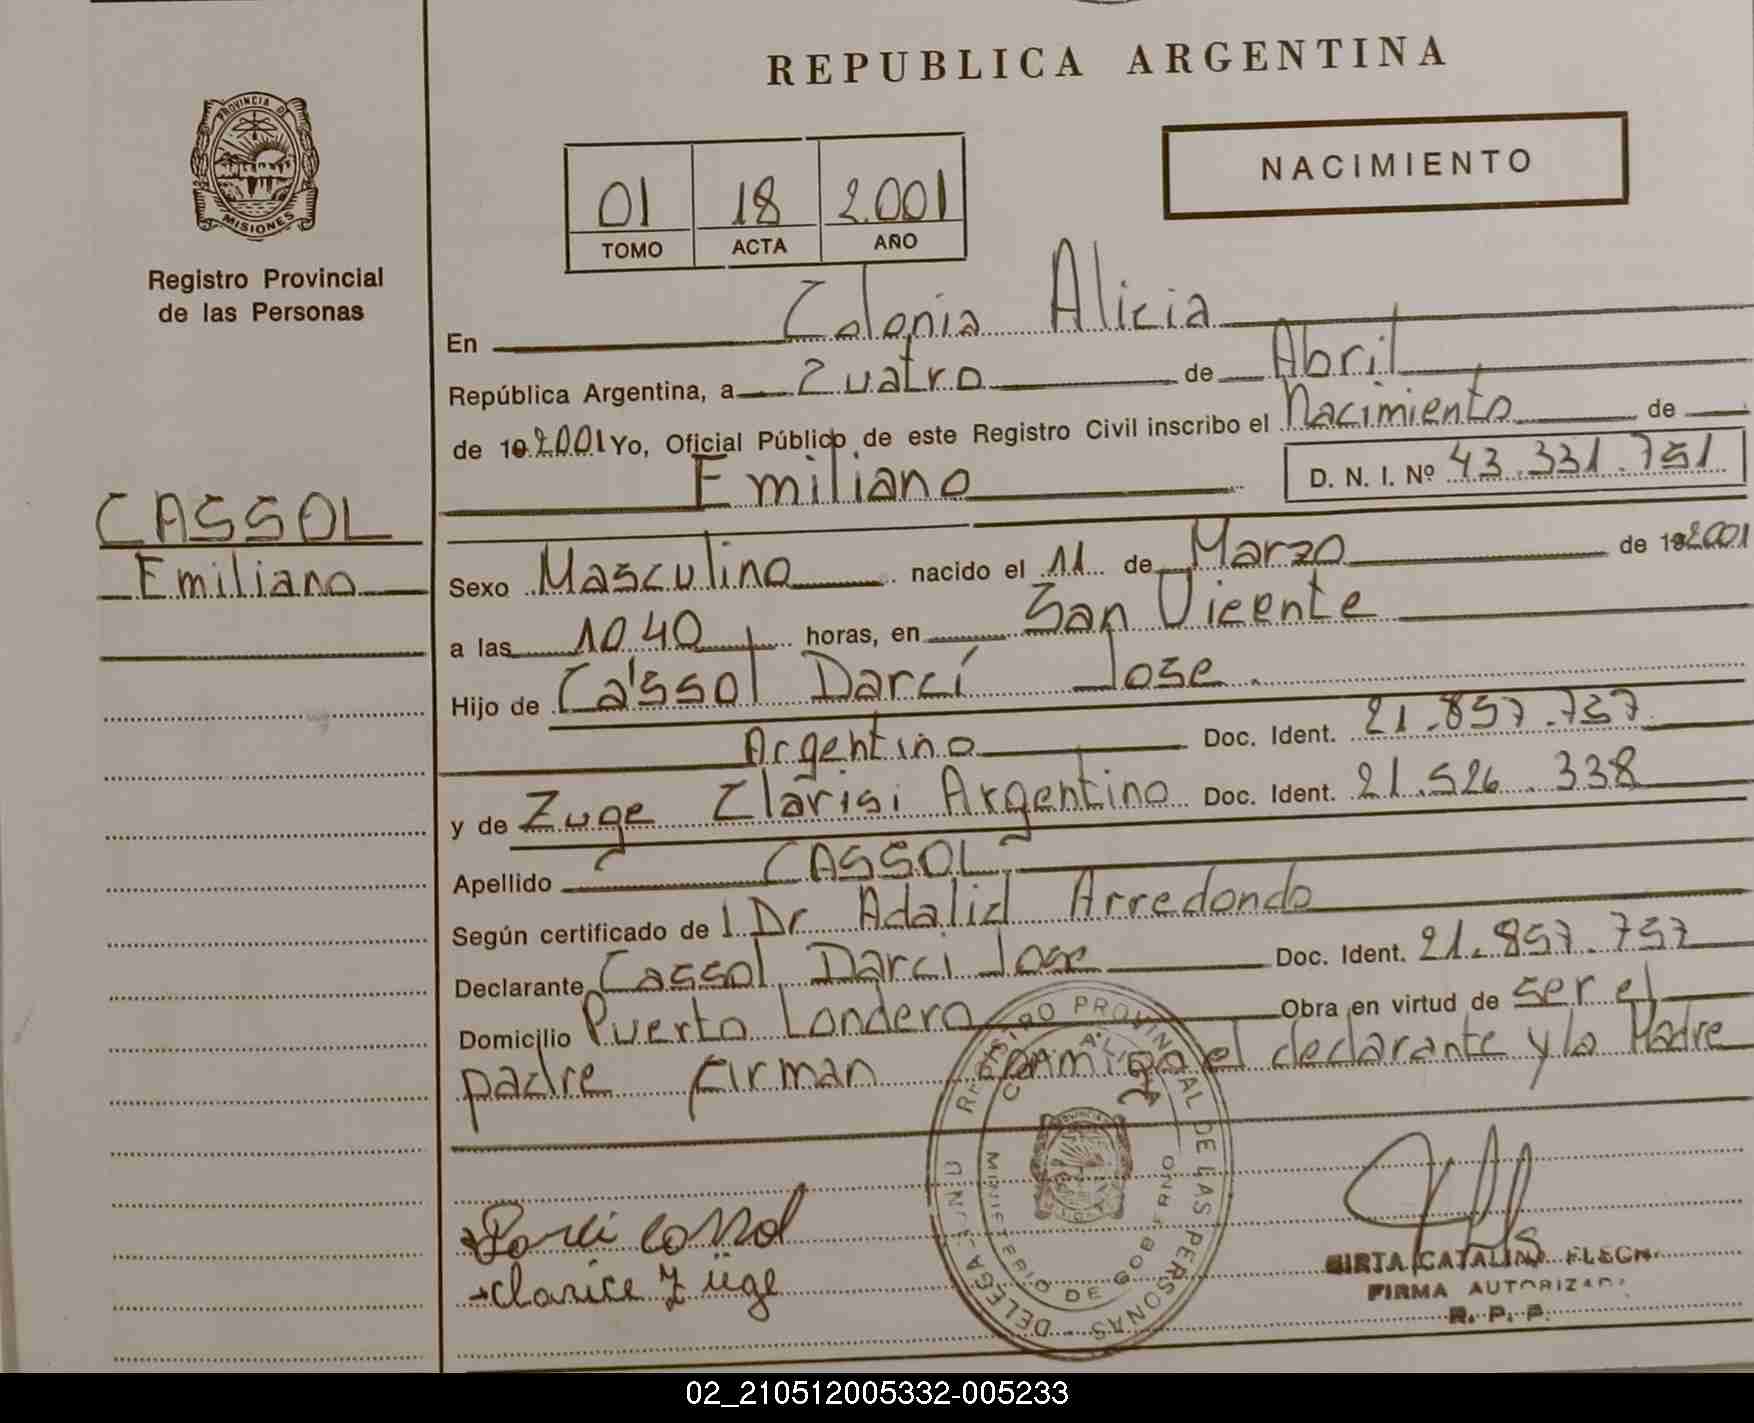 REPUBLICA ARGENTINA
NACIMIENTO
01 18 2.001
TOMO ACTA AÑO
PROVINCIA DE
MISIONES
Registro Provincial
de las Personas
CASSOL
Emiliano
En Colonia Alicia
República Argentina, a Cuatro de Abril
de 19 2001 Yo, Oficial Público de este Registro Civil inscribo el Nacimiento de
Emiliano D. N. I. Nº 43.331.751
Sexo Masculino nacido el 11 de Marzo de 19 2001
a las 10 40 horas, en San Vicente
Hijo de Cassol Darcí Jose
Argentino Doc. Ident. 21.857.757
y de Zuge Clarisi Argentino Doc. Ident. 21.526.338
Apellido CASSOL
Según certificado de Dr Adalid Arredondo
Declarante Cassol Darci Jose Doc. Ident. 21.857.757
Domicilio Puerto Londero Obra en virtud de ser el
padre Firman conmigo el declarante y la Madre
REGISTRO PROVINCIAL DE LAS PERSONAS - DELEGA
MINISTERIO DE GOBIERNO
Darci Cassol
Clarice Züge
MIRTA CATALINA
FIRMA AUTORIZADA
R. P. P.
02_210512005332-005233